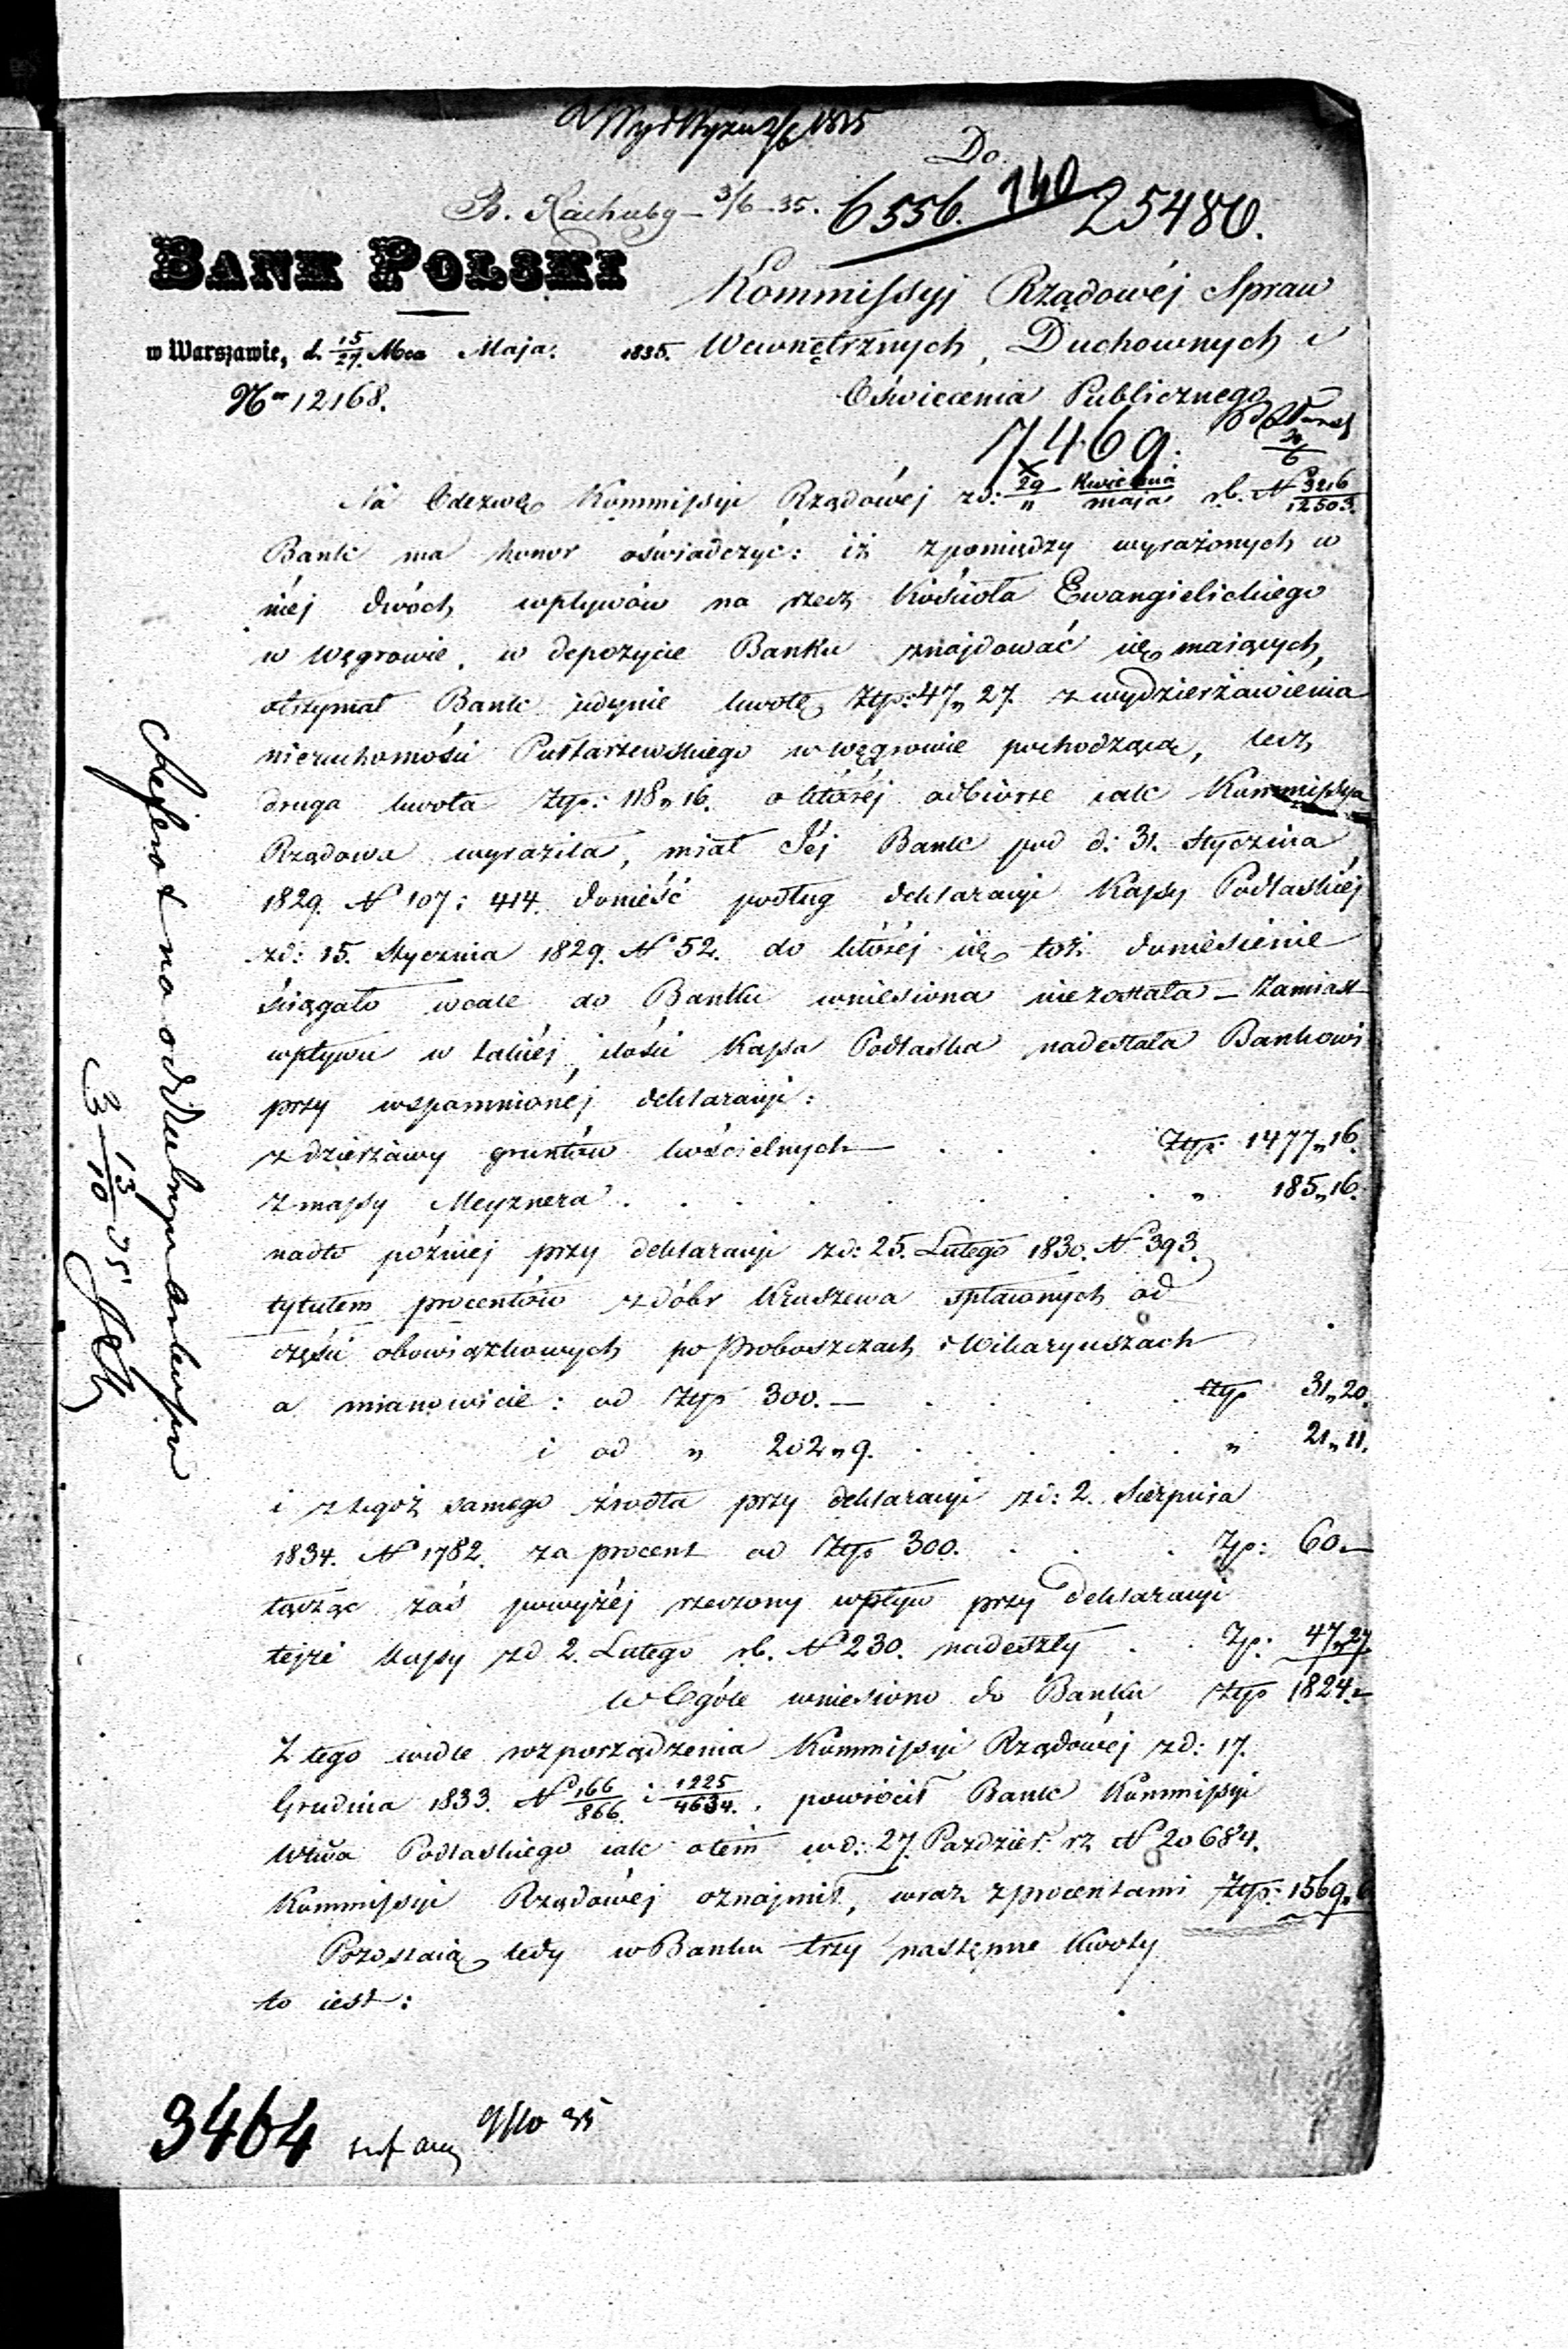 Do
B. Rachuby 3/6 35. 6556. 140 25480.
BANK POLSKI
Kommissyi Rządowéj Spraw
w Warszawie, d. 15/27. Mca Maja. 1835. Wewnętrznych, Duchownych i
Nr 12168. Oświecenia Publicznego
7469.
Na Odezwę Kommissyi Rządowéj zd: 29/11 Kwietnia/maja rb. N 3216/12503.
Bank ma honor oświadczyć: iż zpomiędzy wyrażonych w
niéj dwóch wpływów na rzecz Kościoła Ewangielickiego
w Węgrowie, w depozycie Banku znajdować się maiących,
otrzymał Bank jedynie kwotę Ztp: 47„27. z wydzierżawienia
nieruchomości Pułtarzewskiego w Węgrowie pochodzącą, lecz
druga kwota Ztp: 118„16. o któréj odbiorze iak Kommissya
Rządowa wyraziła, miał Jéj Bank pod d: 31. Stycznia
1829. N 107: 414. donieść podług deklaracyi Kassy Podlaskiéj
zd: 15. Stycznia 1829. N 52. do któréj się toż doniesienie
ściągało wcale do Banku wniesiona niezostała – Zamiast
wpływu w takiéj ilości Kassa Podlaska nadesłała Bankowi
przy wspomnionéj deklaracyi:
z dzierżawy gruntów kościelnych . . . Ztp: 1477„16.
z massy Meyznera . . . . . . . „ 185„16.
nadto późniéj przy deklaracyi zd: 25. Lutego 1830. N 393.
tytułem procentów z dóbr Kruszewa spłaconych od
części obowiązkowych po Proboszczach i Wikaryuszach
a mianowicie: od Ztp 300. — . . . . ztp 31„20.
i od „ 202„9. . . . . . „ 21„11.
i z tegoż samego źrodła przy deklaracyi zd: 2. Sierpnia
1834. N 1782. za procent od Ztp 300. . . . Zp: 60„—
łącząc zaś powyżéj rzeczony wpływ przy deklaracyi
tejże kassy zd 2. Lutego rb. N 230. nadeszły . . Zp: 47„27
w Ogóle wniesiono do Banku Ztp 1824.„—
Z tego wedle rozporządzenia Kommissyi Rządowéj zd: 17.
Grudnia 1833. N 166/866. i 1225/4634., powrócił Bank Kommissyi
Wtwa Podlaskiego iak o tem wd: 27. Paździer. rz N 20684.
Kommissyi Rządowéj oznajmił, wraz z procentami Ztp: 1569„6
Pozostaią tedy w Banku trzy następne Kwoty
to iest:
3464